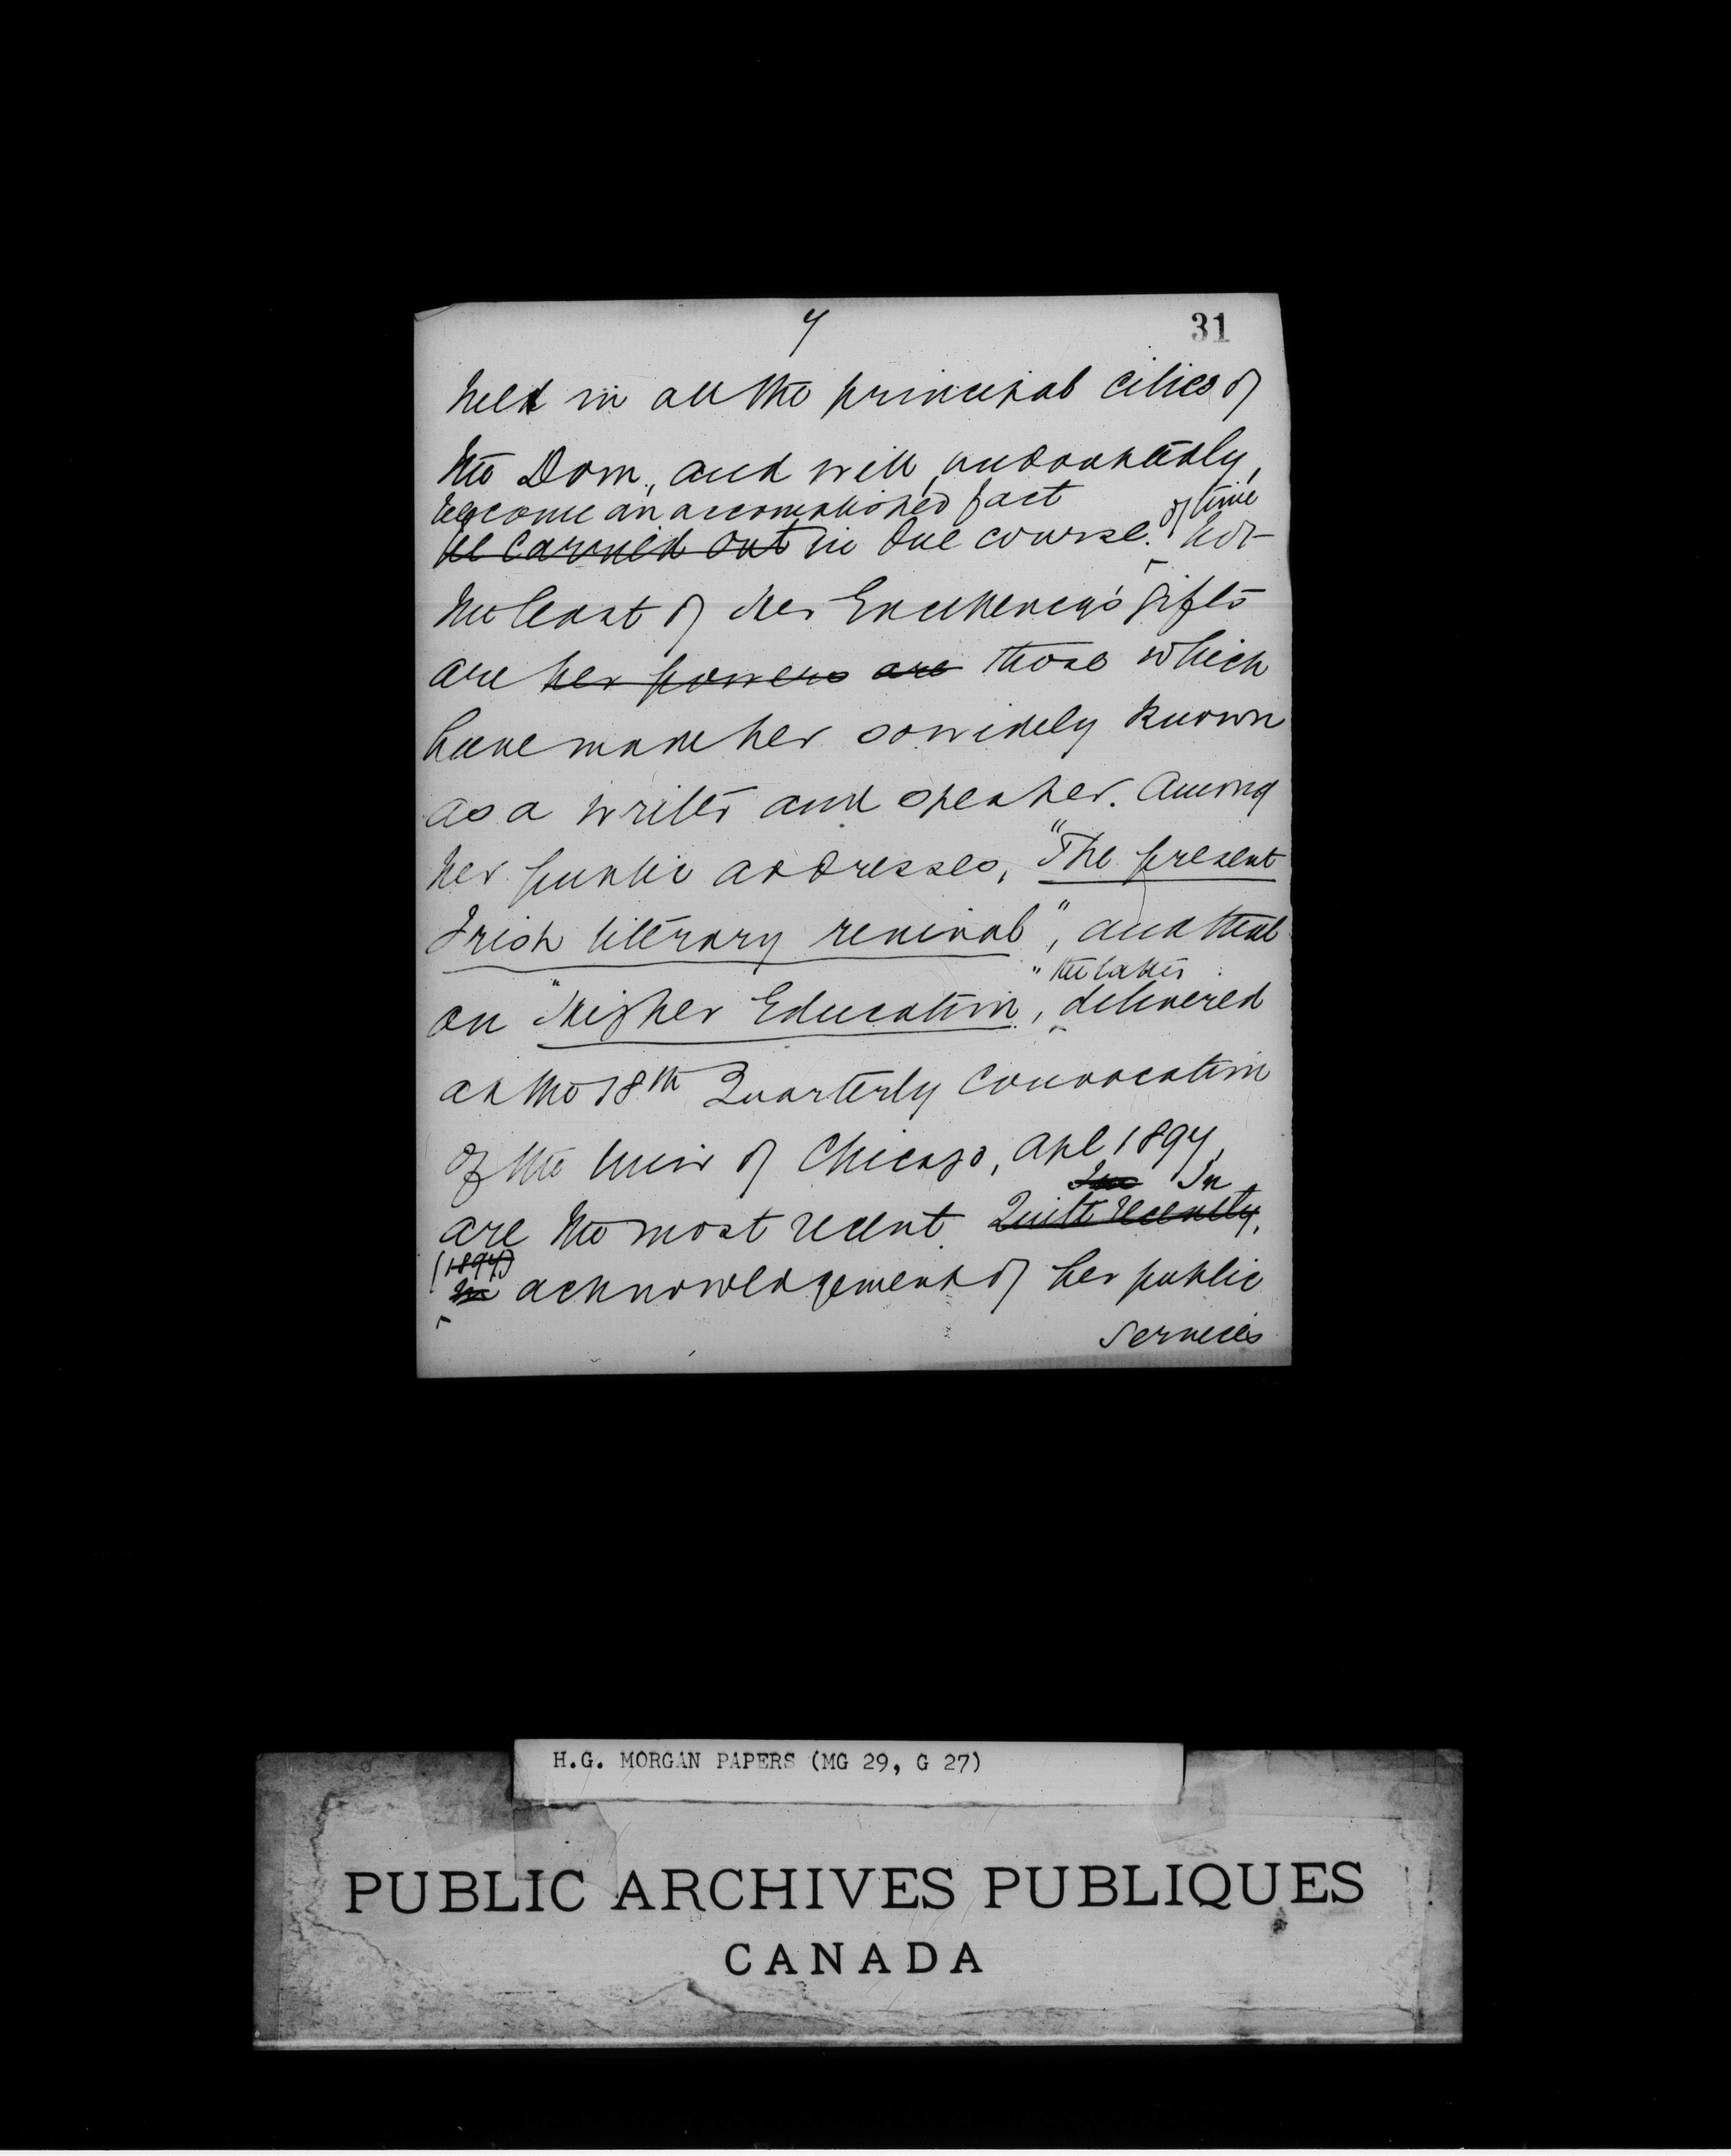 7
31
held in all the principal cities of
the Dom., and will, undoubtedly,
become an accomplished fact
of time
be carried out in due course. Not
the least of Her Excellency's gifts
are her powers are those which
have made her so widely known
as a writer and speaker. Among
her public addresses, "The present
Irish literary revival", and that
the latter
on "Higher Education", delivered
at the 18th Quarterly Convocation
of the Univ of Chicago, Apl 1897,
In In
are the most recent Quite recently,
(1897)
In acknowledgement of her public
services
H.G. MORGAN PAPERS (MG 29, G 27)
PUBLIC ARCHIVES PUBLIQUES
CANADA